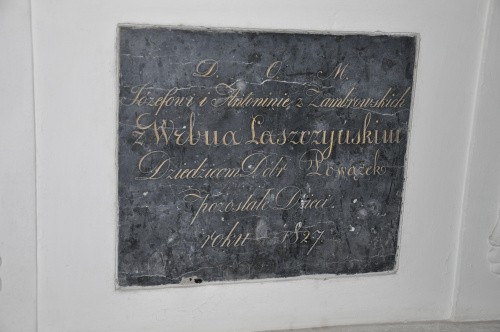 D. O. M.
Józefowi i Antoninie z Zambrowskich
z Wrbna Laszczyńskim
Dziedzicom Dóbr Powązek
Pozostałe Dzieci
roku 1827